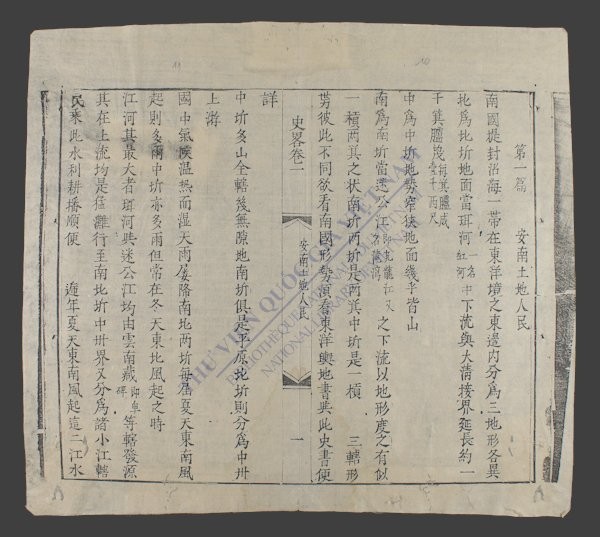 第一篇 安南土地人民
南國提封沿海一帶在東洋境之東邊内分爲三地形各異
地爲北圻地面當珥河一名紅河中下流與大清接界延長約一
千箕朧茂
中爲中圻地勢窄狹地面幾乎皆山
南爲南圻當迷公江又名 之下流以地形度之有似
一橫兩箕之状南圻西圻是兩箕中圻是一橫 三轄形
勢彼此不同欲看南國形勢須看東洋輿地書與此史書便
詳
史畧卷二
安南土地人民
一
中圻多山全轄幾無隙地南圻俱是平原北圻則分爲中州
上游
國中氣候温熱而湿天雨屡降南北两圻每届夏天東南風
起則多雨中圻亦多雨但常在冬天東北風起之時
江河其最大者珥河與迷公江均由雲南藏 等轄發源
其在上流均是猛灘行至南北圻中州界又分爲諸小江轄
民乘此水利耕播順便 遞年夏天東南風起這二江水
THƯ VIỆN QUỐC GIA VIỆT NAM
BIBLIOTHÈQUE NATIONALE DU VIETNAM
NATIONAL LIBRARY OF VIETNAM